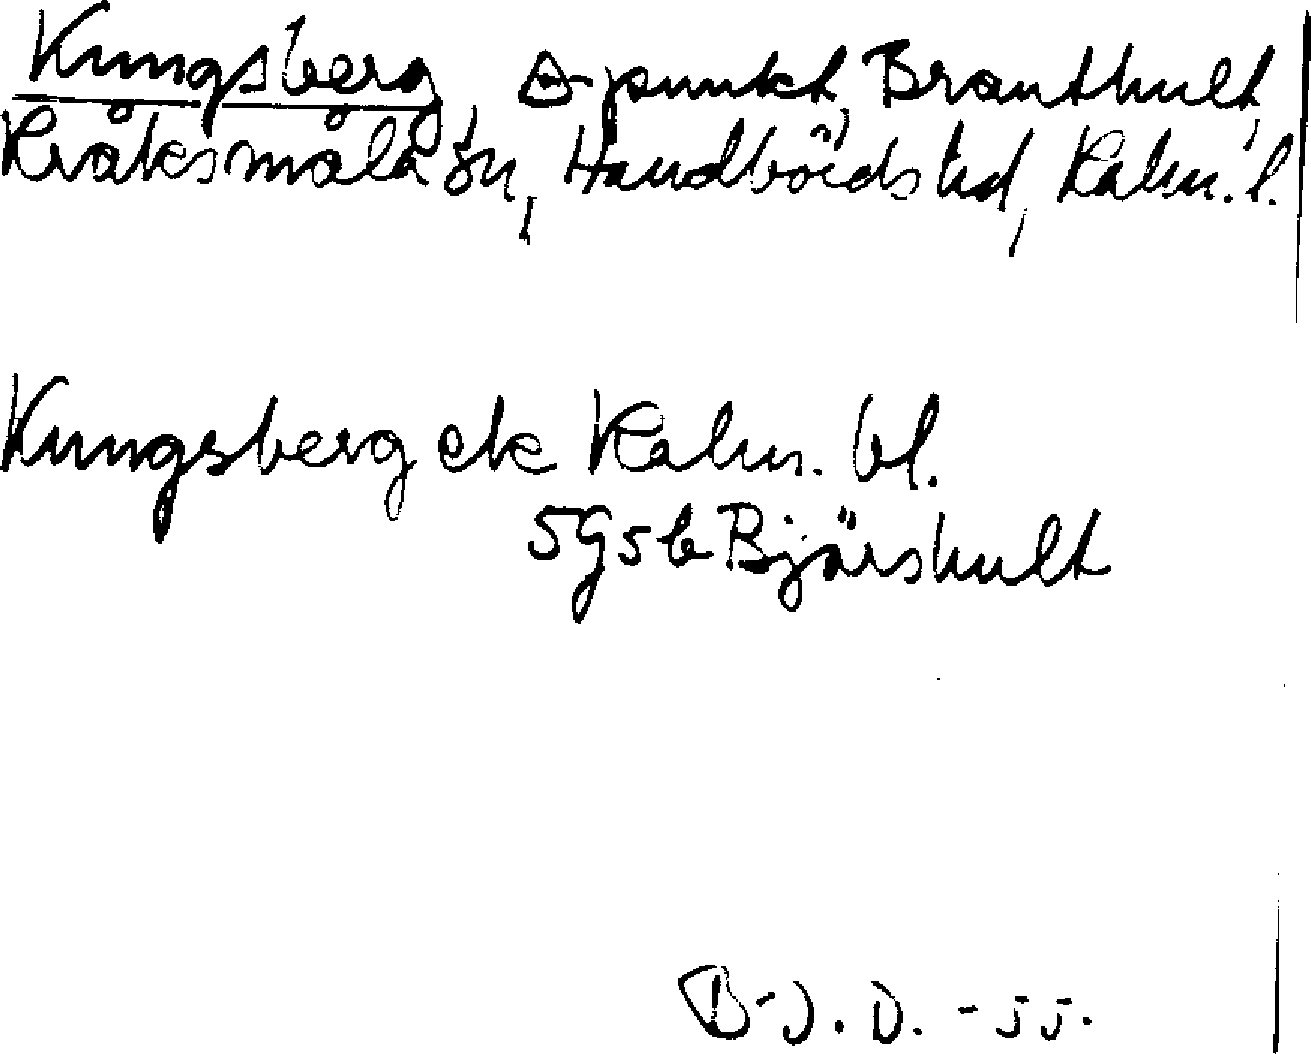 Kungsberg, △-punkt, Branthult,
Kråksmåla sn, Handbörds hd, Kalm. l.
Kungsberg ek Kalm. bl.
5G5b Bjärshult
B-J. D. -55.